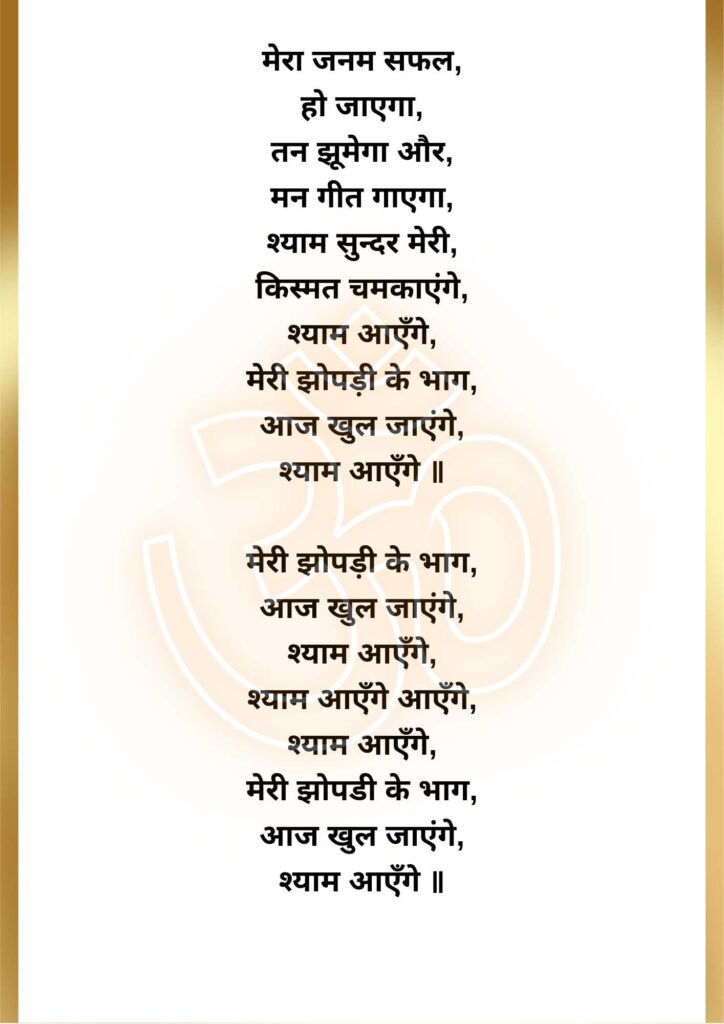 मेरा जनम सफल,
हो जाएगा,
तन झूमेगा और,
मन गीत गाएगा,
श्याम सुन्दर मेरी,
किस्मत चमकाएंगे,
श्याम आएँगे,
मेरी झोपड़ी के भाग,
आज खुल जाएंगे,
श्याम आएँगे ॥
मेरी झोपड़ी के भाग,
आज खुल जाएंगे,
श्याम आएँगे,
श्याम आएँगे आएँगे,
श्याम आएँगे,
मेरी झोपडी के भाग,
आज खुल जाएंगे,
श्याम आएँगे ॥